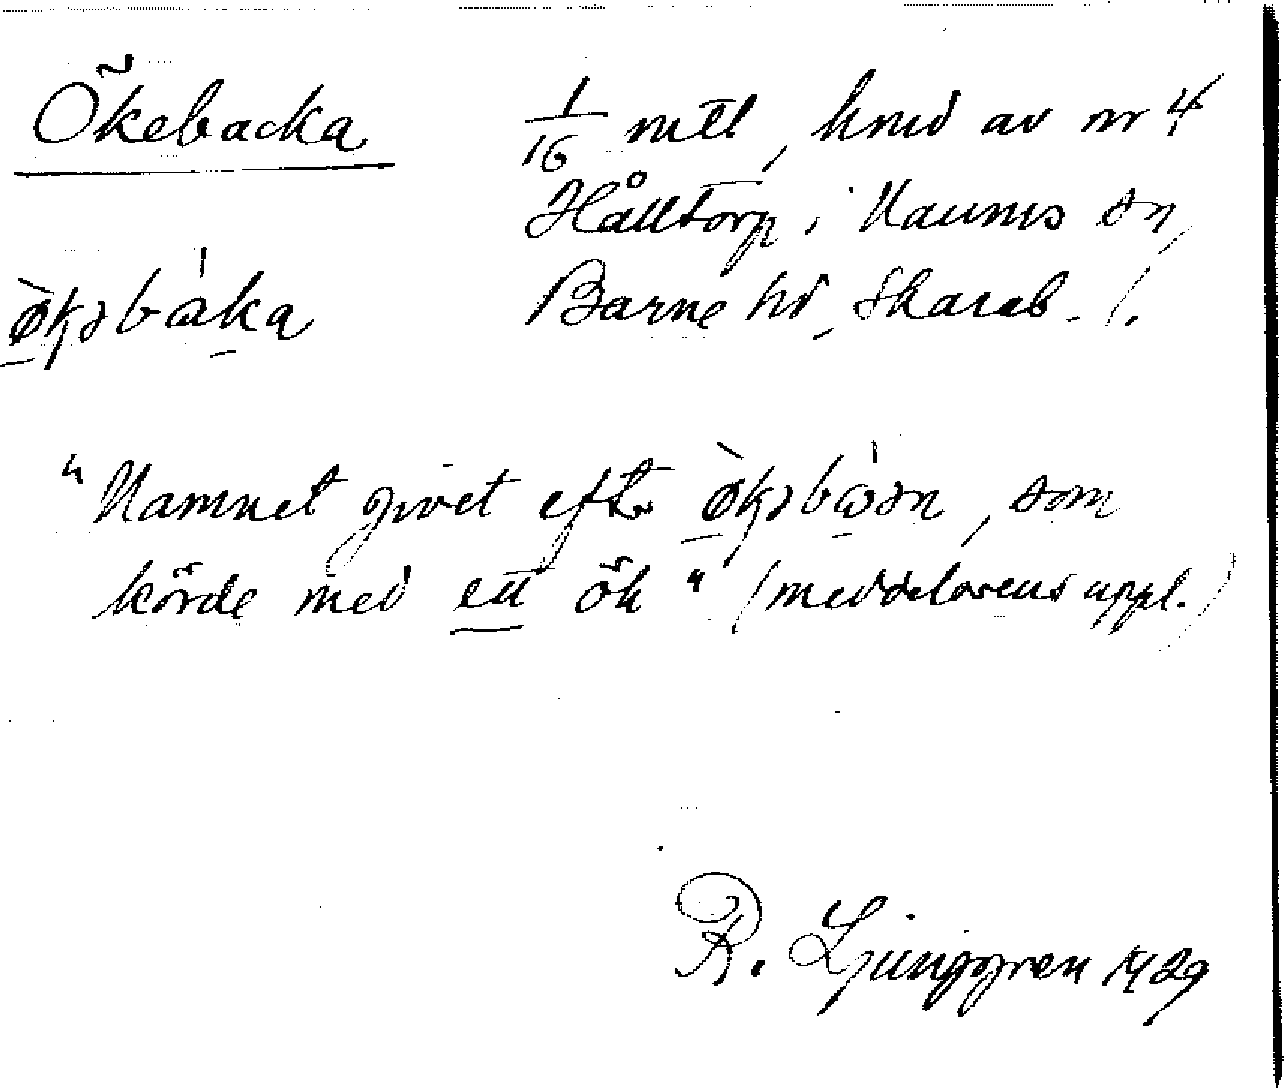 Ökebacka
1/16 mtl, hmd av nr 4
Hålltorp i Naums sn,
Barne hd, Skarab. l.
ø̀kəbáka
"Namnet givet efter ø̀kəbóən, som
körde med ett ök" (meddelarens uppl.)
R. Ljunggren 1929